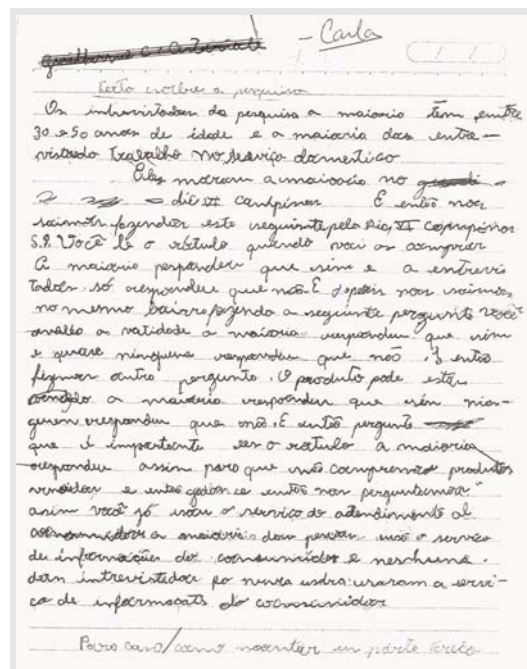 - Carla
Texto sobre a pesquisa
Os intrevistados da pesquisa a maioria tem entre
30 e 50 anos de idade e a maioria das entre-
vistado trabalho no serviço domestico
Eles moram a maioria no
dic VI campinas E entõs nos
saimos fazendos este seguinte pelo Dic VI campinas
S.P. Você lê o rótulo quando vai as comprar
A maioria respondeu que sim e a entrevis
tados só respondeu que não E depois nos saimos
no mesmo bairro fazendo a seguinte pergunta você
avalia a validade a maioria respondeu que sim
e quase ninguem respondeu que não . E entõs
fizemos outra pergunta . O produto pode estar
a maioria respondeu que sim nin-
guem respondeu que não . E entõs pergunte
que é importante o rótulo a maioria
respondeu assim para que não compremos produtos
vencidos e entõs nos perguntamos
asim você já usou o serviço do atendimento al
consumidor a maioria usó o serviço
de informações do consumidor e neschuma
dos intrevistados nunca usaram a servi-
ço de informaçats do consumidor
parte texto